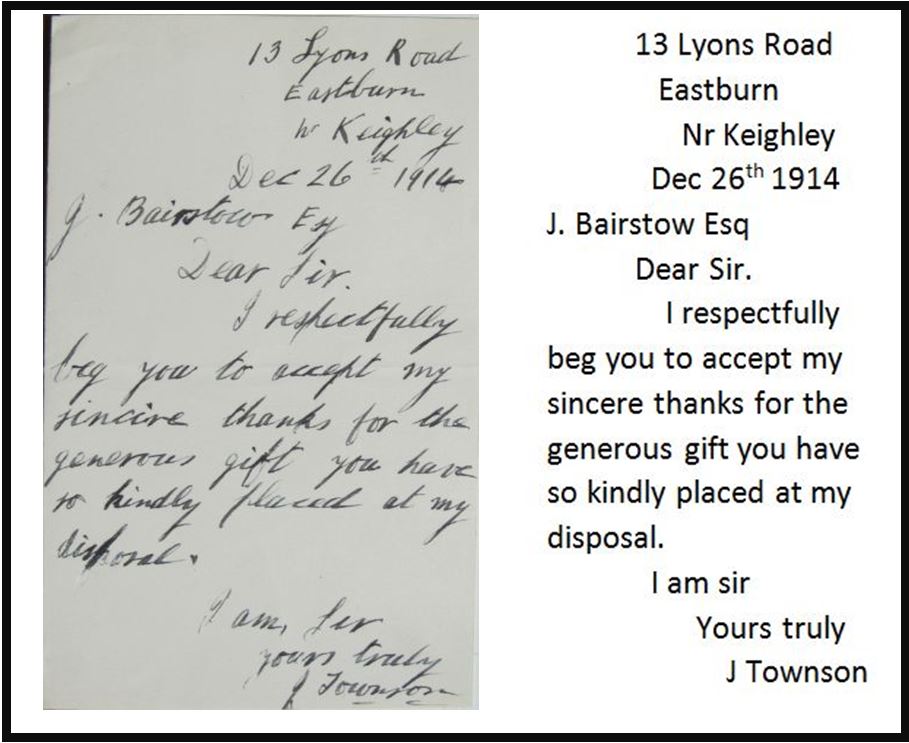 13 Lyons Road
Eastburn
Nr Keighley
Dec 26th 1914
J. Bairstow Esq
Dear Sir.
I respectfully
beg you to accept my
sincire thanks for the
generous gift you have
so kindly placed at my
disposal.
I am, Sir
yours truly
J Townson
13 Lyons Road
Eastburn
Nr Keighley
Dec 26th 1914
J. Bairstow Esq
Dear Sir.
I respectfully
beg you to accept my
sincere thanks for the
generous gift you have
so kindly placed at my
disposal.
I am sir
Yours truly
J Townson